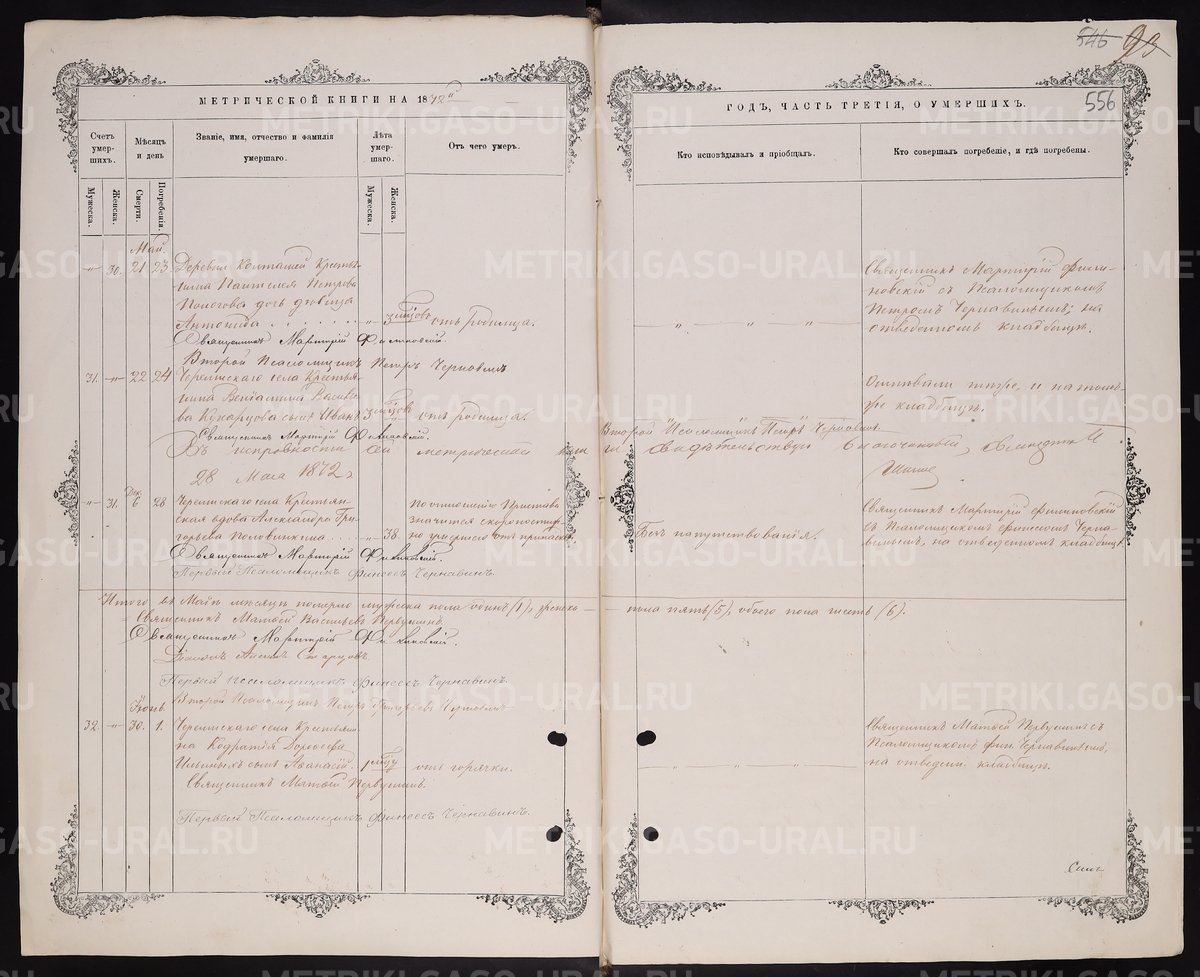 546 93
556
МЕТРИЧЕСКОЙ КНИГИ НА 1872й
ГОДЪ, ЧАСТЬ ТРЕТІЯ, О УМЕРШИХЪ.
Счетъ умер-шихъ.
Мѣсяцъ и день
Званіе, имя, отчество и фамилія умершаго.
Лѣта умер-шаго.
Отъ чего умеръ.
Кто исповѣдывалъ и пріобщалъ.
Кто совершалъ погребеніе, и гдѣ погребены.
Мужеска. Женска. Смерти. Погребенія. Мужеска. Женска.
Май.
" 30. 21 23 Деревни Колташей Кресть-
янина Пантелея Петрова
дочь дѣвица
Антонида " 3 отъ родимца.
Священникъ Мартирій Филиновскій с Псаломщикомъ
Петромъ Чернавинымъ; на
отведенномъ кладбищѣ.
Священникъ Мартирій Филиновскій.
Второй Псаломщикъ Петръ Чернавинъ
31. " 22 24 Черемисскаго села Крестья-
нина Веніамина Василье-
ва сынъ Иванъ 3 отъ родимца.
Отпѣвали тѣже, и на томъ-
же кладбищѣ.
Священникъ Мартирій Филиновскій.
Второй Псаломщикъ Петръ Чернавинъ
Въ исправности сей метрической книги свидѣтельствую Благочинный, Священникъ
28 Мая 1872 г.
" 31. 6 28 Черемисскаго села Крестьян-
ская вдова Александра Гри-
горьева Половинкина " 38.
по отношенію Пристава
значится скоропостиж-
но умершею отъ припадка.
Безъ напутствованія.
Священникъ Мартирій Филиновскій
съ Псаломщикомъ Финеесомъ Черна-
винымъ, на отведенномъ кладбищѣ.
Священникъ Мартирій Филиновскій.
Первый Псаломщикъ Финеесъ Чернавинъ.
Итого въ Маѣ мѣсяцѣ померло мужеска пола одинъ (1), женска — пола пять (5), обоего пола шесть (6).
Священникъ Матѳей Васильевъ Первушинъ.
Священникъ Мартирій Филиновскій.
Старцовъ.
Первый Псаломщикъ Финеесъ Чернавинъ.
Второй Псаломщикъ Петръ Григорьевъ Чернавинъ
Іюнь
32. " 30. 1. Черемисскаго села Крестьяни-
на Кодратія Дороѳеева
Ильиныхъ сынъ Аѳанасій. 1 отъ горячки.
Священникъ Матѳей Первушинъ съ
Псаломщикомъ Фин. Чернавинымъ,
на отведен. кладбищѣ.
Священникъ Матѳей Первушинъ.
Первый Псаломщикъ Финеесъ Чернавинъ.
METRIKI.GASO-URAL.RU